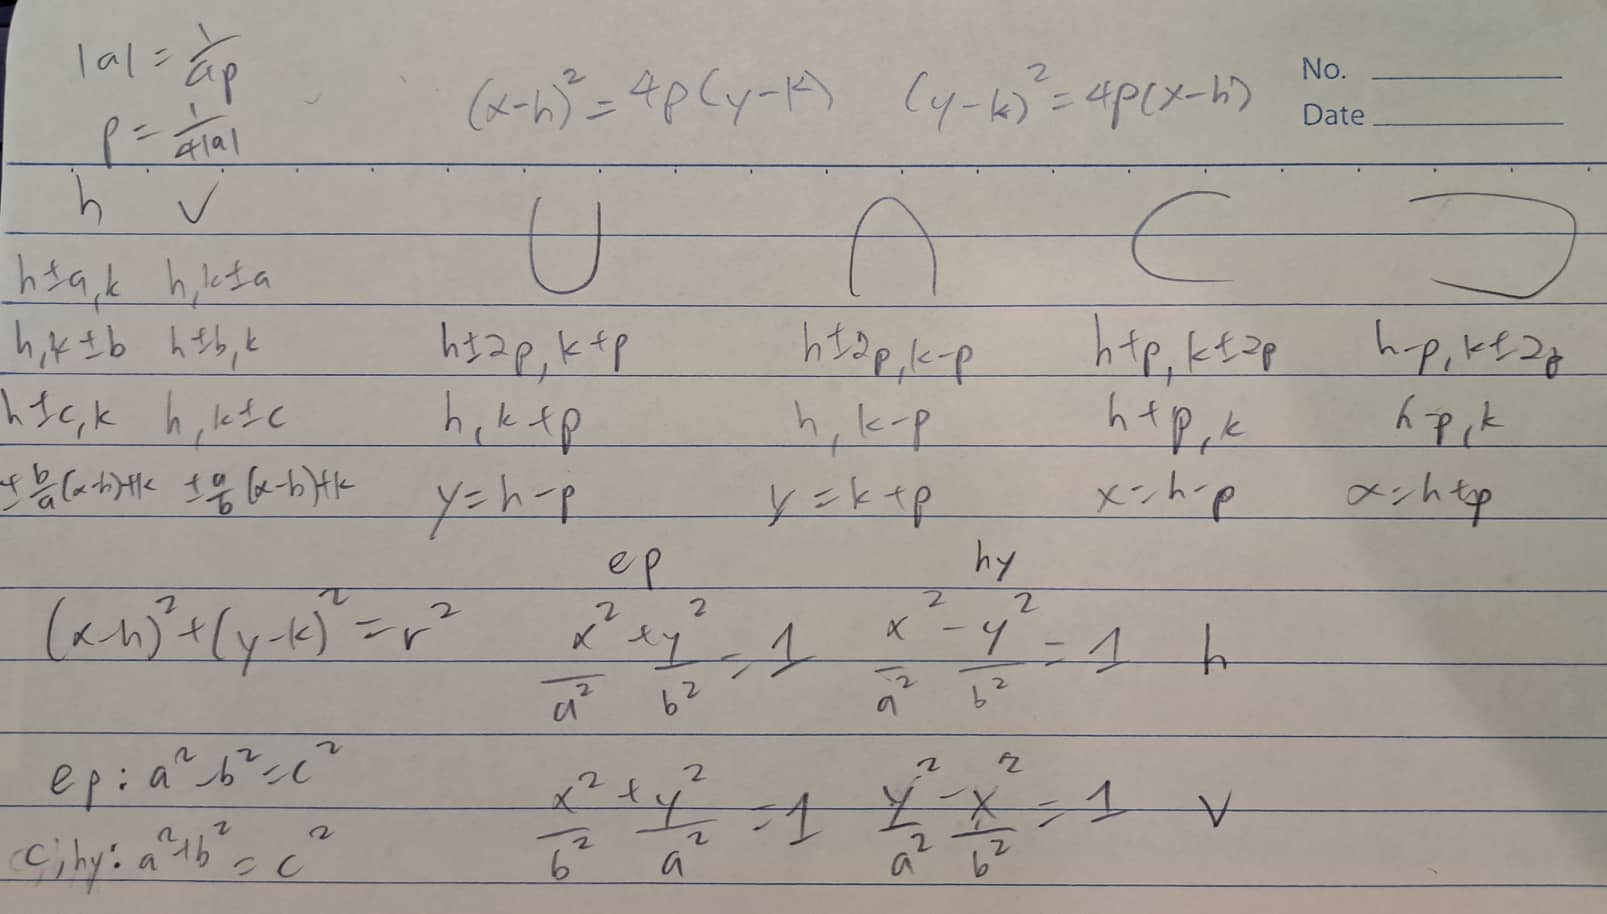 |a| = 1/ap
(x-h)² = 4p(y-k) (y-k)² = 4p(x-h) No.
p = 1/4|a| Date
h v
h±a,k h,k±a
h,k±b h±b,k h±2p,k+p h±2p,k-p h+p,k±2p h-p,k±2p
h±c,k h,k±c h,k+p h,k-p h+p,k h-p,k
±b/a(x-h)+k ±a/b(x-h)+k y=h-p y=k+p x=h-p x=h+p
ep hy
(x-h)²+(y-k)²=r² x²/a²+y²/b²=1 x²/a²-y²/b²=1 h
ep: a²-b²=c²
x²/b²+y²/a²=1 y²/a²-x²/b²=1 v
c;hy: a²+b²=c²